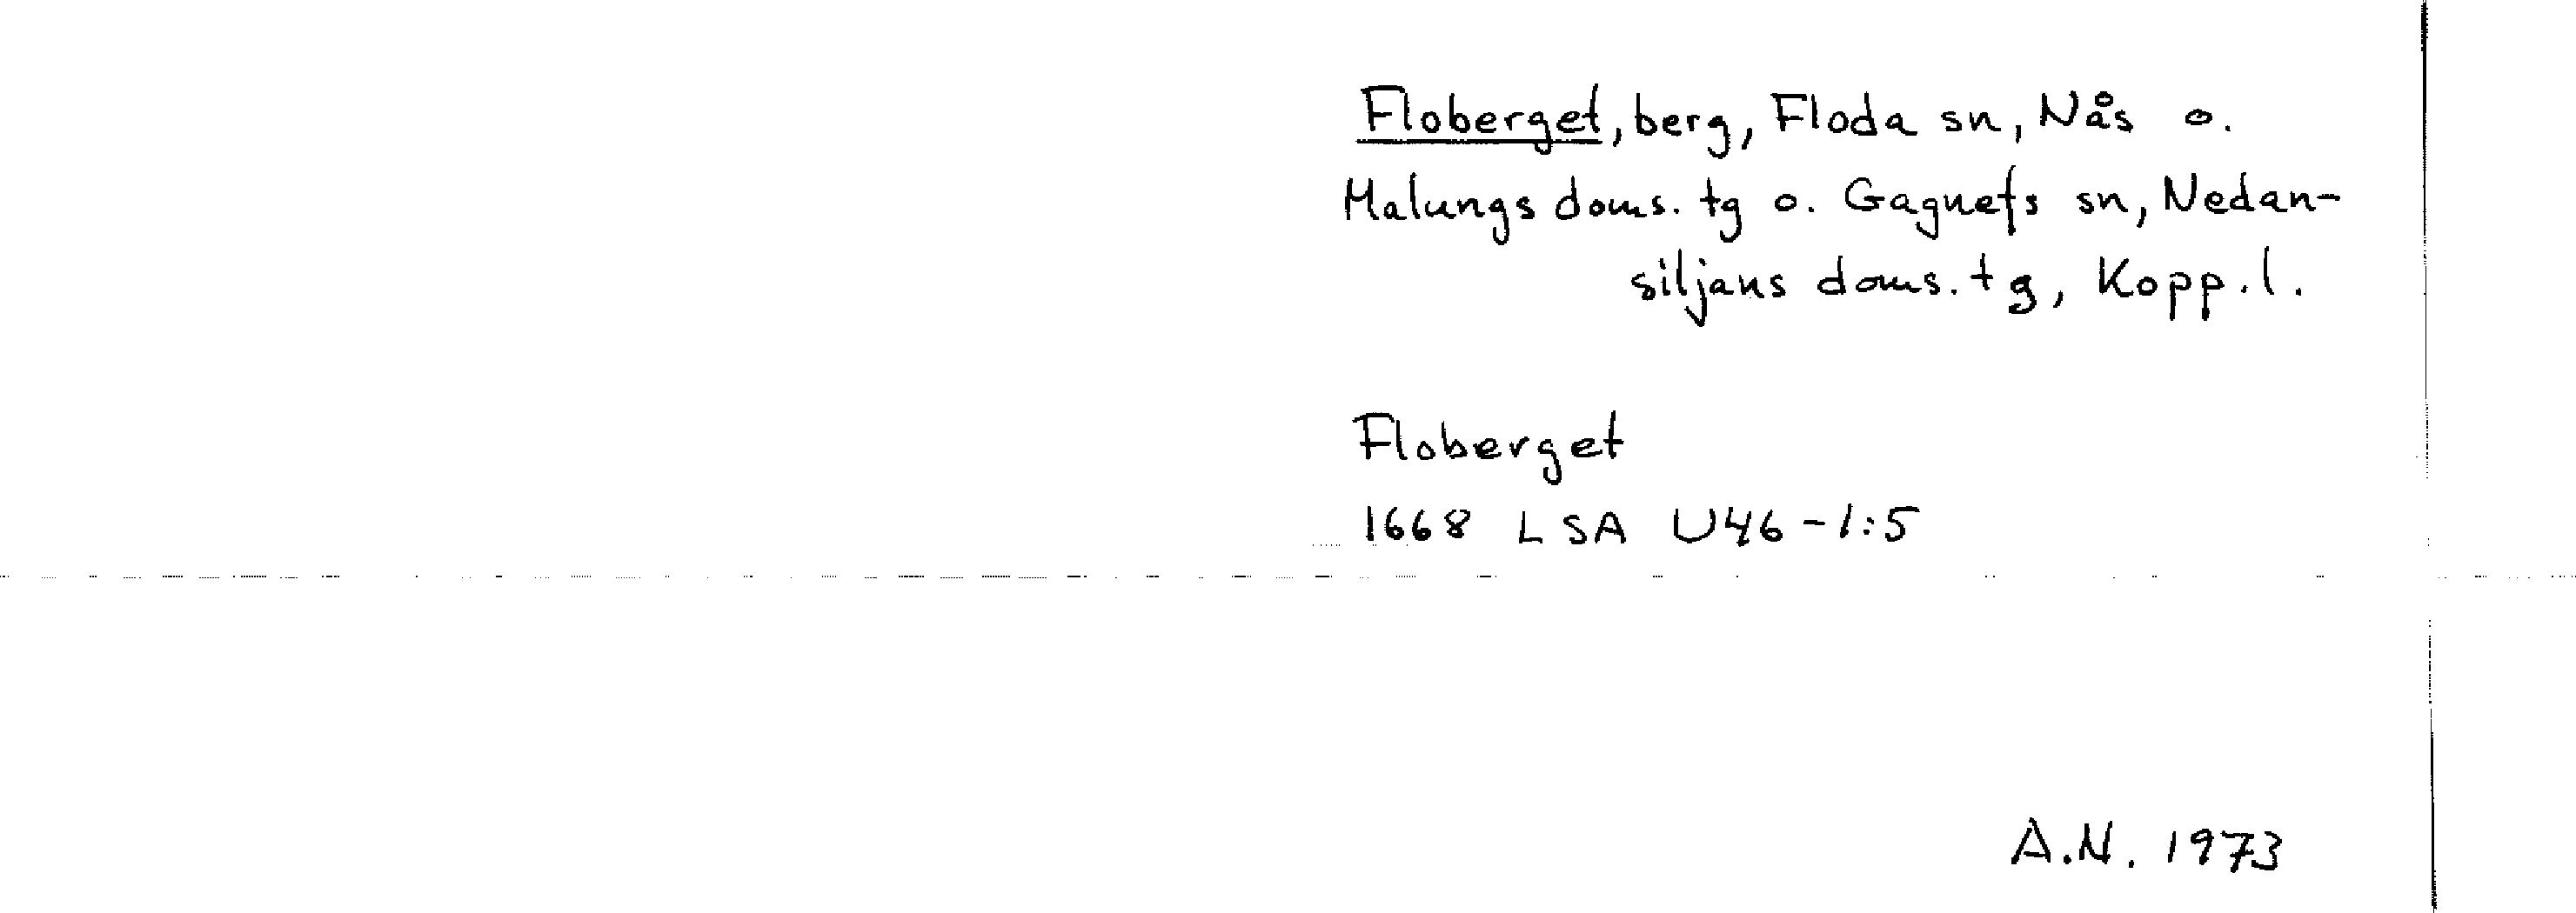 Floberget, berg, Floda sn, Nås o.
Malungs doms. tg o. Gagnefs sn, Nedan-
siljans doms. tg, Kopp. l.
Floberget
1668 LSA U46-1:5
A.N. 1973